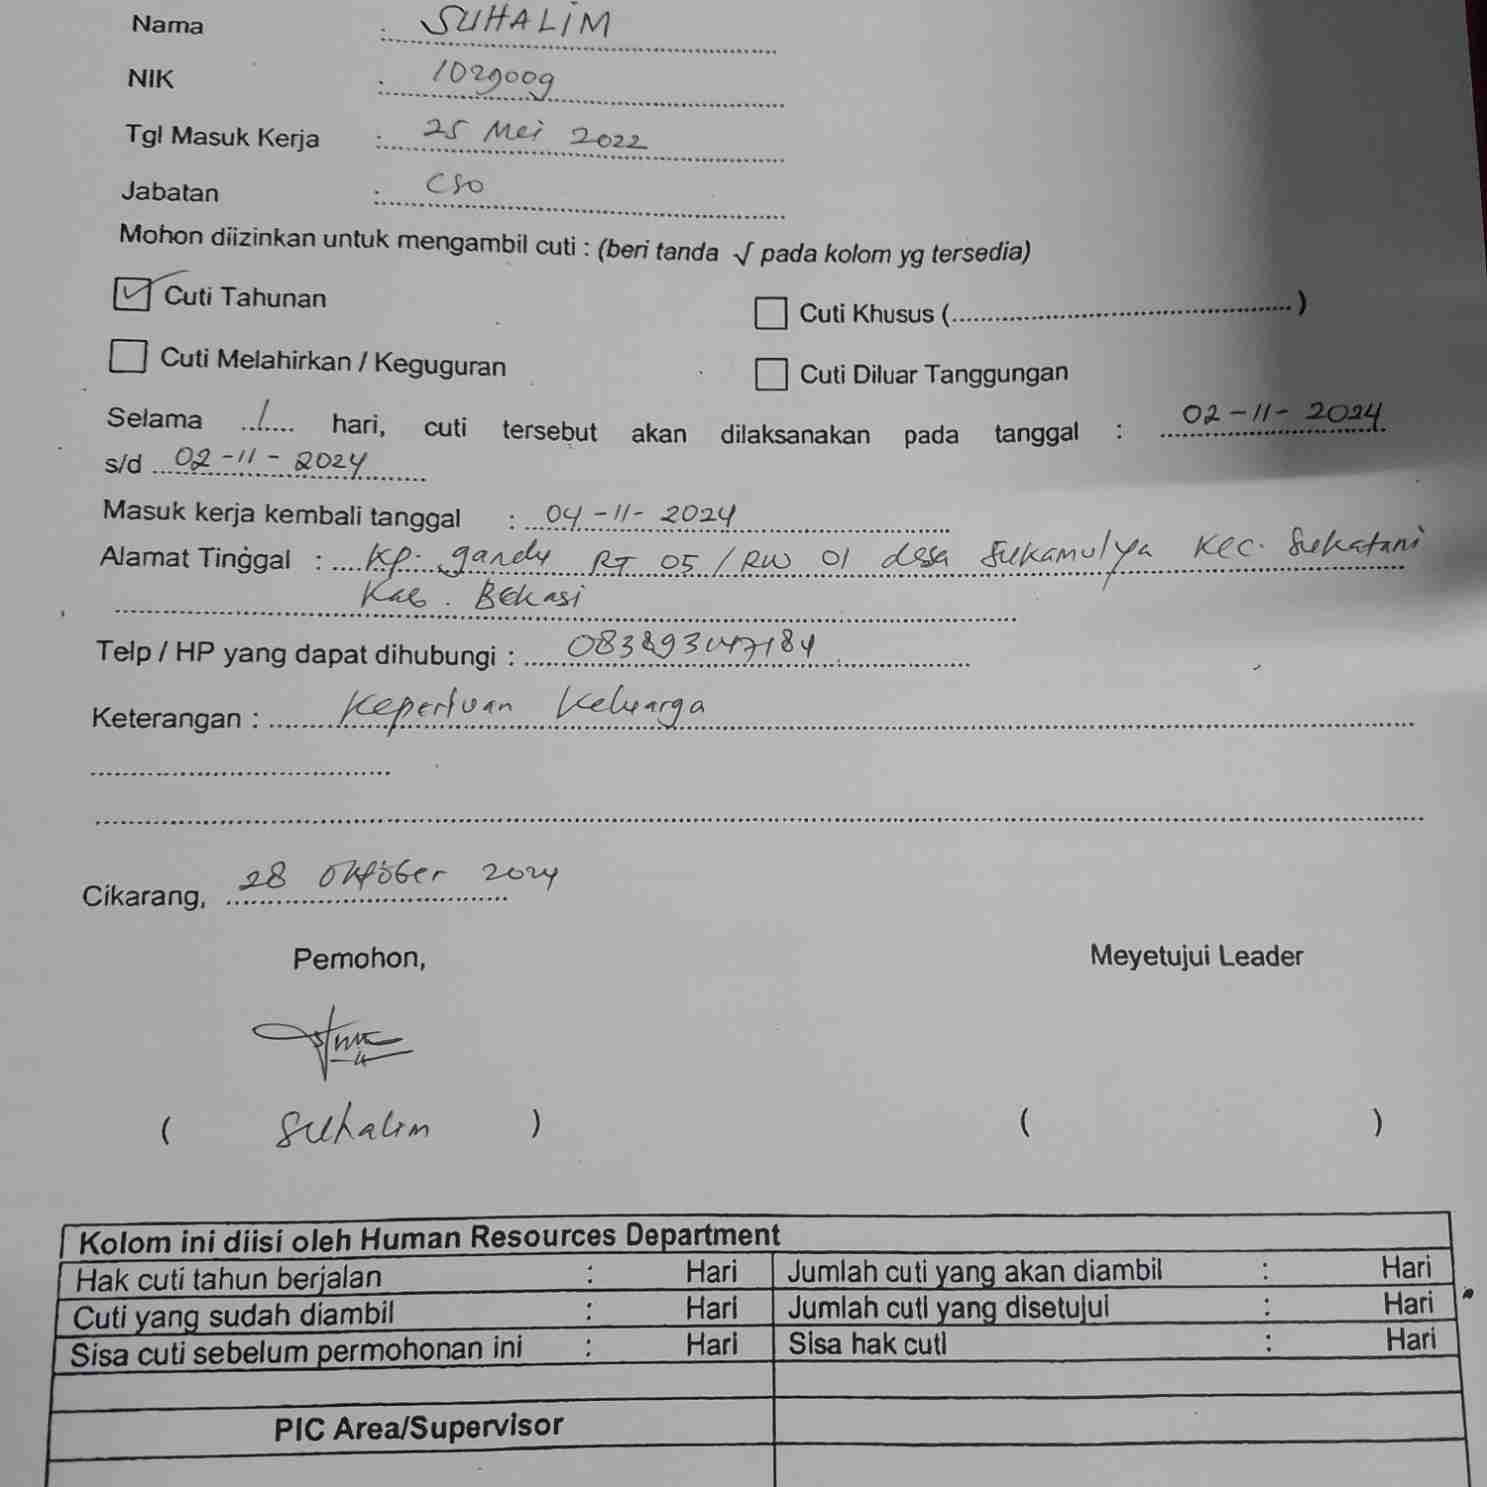 Nama : SUHALIM
NIK : 1029009
Tgl Masuk Kerja : 25 Mei 2022
Jabatan : CSO
Mohon diizinkan untuk mengambil cuti : (beri tanda √ pada kolom yg tersedia)
☑ Cuti Tahunan ☐ Cuti Khusus (..................................................)
☐ Cuti Melahirkan / Keguguran ☐ Cuti Diluar Tanggungan
Selama ..1.... hari, cuti tersebut akan dilaksanakan pada tanggal : 02-11-2024
s/d 02-11-2024
Masuk kerja kembali tanggal : 04-11-2024
Alamat Tinggal : Kp. gandu RT 05 / RW 01 desa Sukamulya Kec. Sukatani
Kab. Bekasi
Telp / HP yang dapat dihubungi : 083893047184
Keterangan : Keperluan Keluarga
Cikarang, 28 Oktober 2024
Pemohon, Meyetujui Leader
( Suhalim ) ( )
Kolom ini diisi oleh Human Resources Department
Hak cuti tahun berjalan : Hari Jumlah cuti yang akan diambil : Hari
Cuti yang sudah diambil : Hari Jumlah cuti yang disetujui : Hari
Sisa cuti sebelum permohonan ini : Hari Sisa hak cuti : Hari
PIC Area/Supervisor